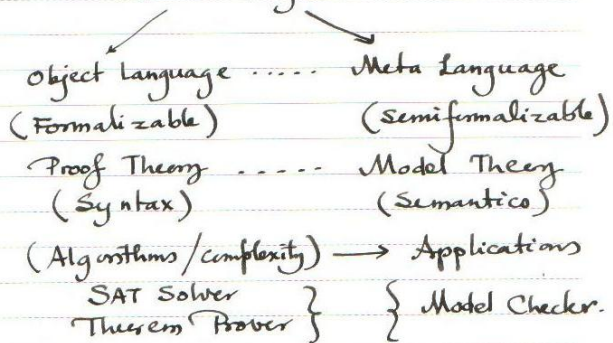 Object Language ..... Meta Language
(Formalizable) (Semiformalizable)
Proof Theory ..... Model Theory
(Syntax) (Semantics)
(Algorithms/complexity) → Applications
SAT Solver } { Model Checker.
Theorem Prover